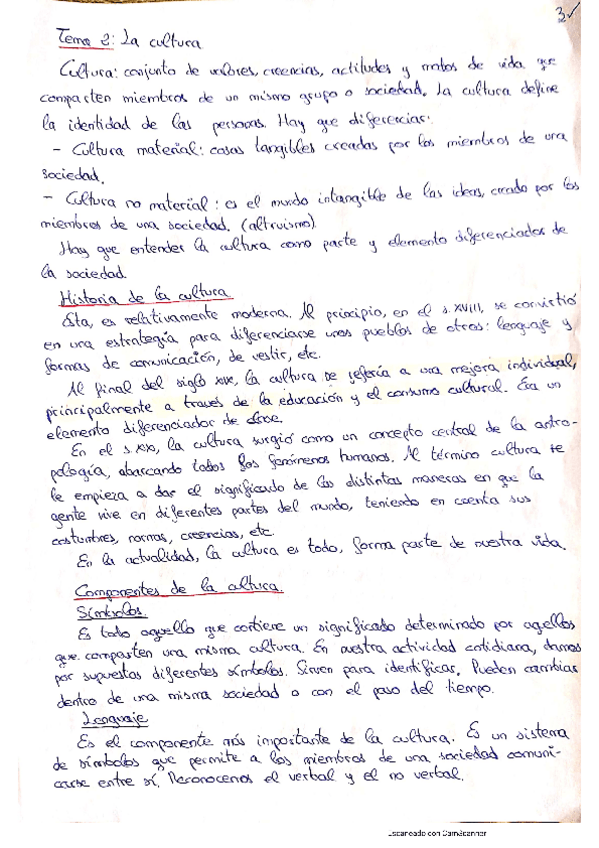 3✓
Tema 2: La cultura
Cultura: conjunto de valores, creencias, actitudes y modos de vida que
comparten miembros de un mismo grupo o sociedad. La cultura define
la identidad de las personas. Hay que diferenciar:
- Cultura material: cosas tangibles creadas por los miembros de una
sociedad.
- Cultura no material: es el mundo intangible de las ideas, creado por los
miembros de una sociedad. (altruismo)
Hay que entender la cultura como parte y elemento diferenciador de
la sociedad.
Historia de la cultura
Esta, es relativamente moderna. Al principio, en el s. XVIII, se convirtió
en una estrategia para diferenciarse unos pueblos de otros: lenguaje y
formas de comunicación, de vestir, etc.
Al final del siglo XIX, la cultura se refería a una mejora individual,
principalmente a través de la educación y el consumo cultural. Era un
elemento diferenciador de clase.
En el s. XX, la cultura surgió como un concepto central de la antro-
pología, abarcando todos los fenómenos humanos. Al término cultura se
le empieza a dar el significado de las distintas maneras en que la
gente vive en diferentes partes del mundo, teniendo en cuenta sus
costumbres, normas, creencias, etc.
En la actualidad, la cultura es todo, forma parte de nuestra vida.
Componentes de la cultura
Símbolos
Es todo aquello que contiene un significado determinado por aquellos
que comparten una misma cultura. En nuestra actividad cotidiana, damos
por supuestos diferentes símbolos. Sirven para identificar. Pueden cambiar
dentro de una misma sociedad o con el paso del tiempo.
Lenguaje
Es el componente más importante de la cultura. Es un sistema
de símbolos que permite a los miembros de una sociedad comuni-
carse entre sí. Reconocemos el verbal y el no verbal.
Escaneado con CamScanner